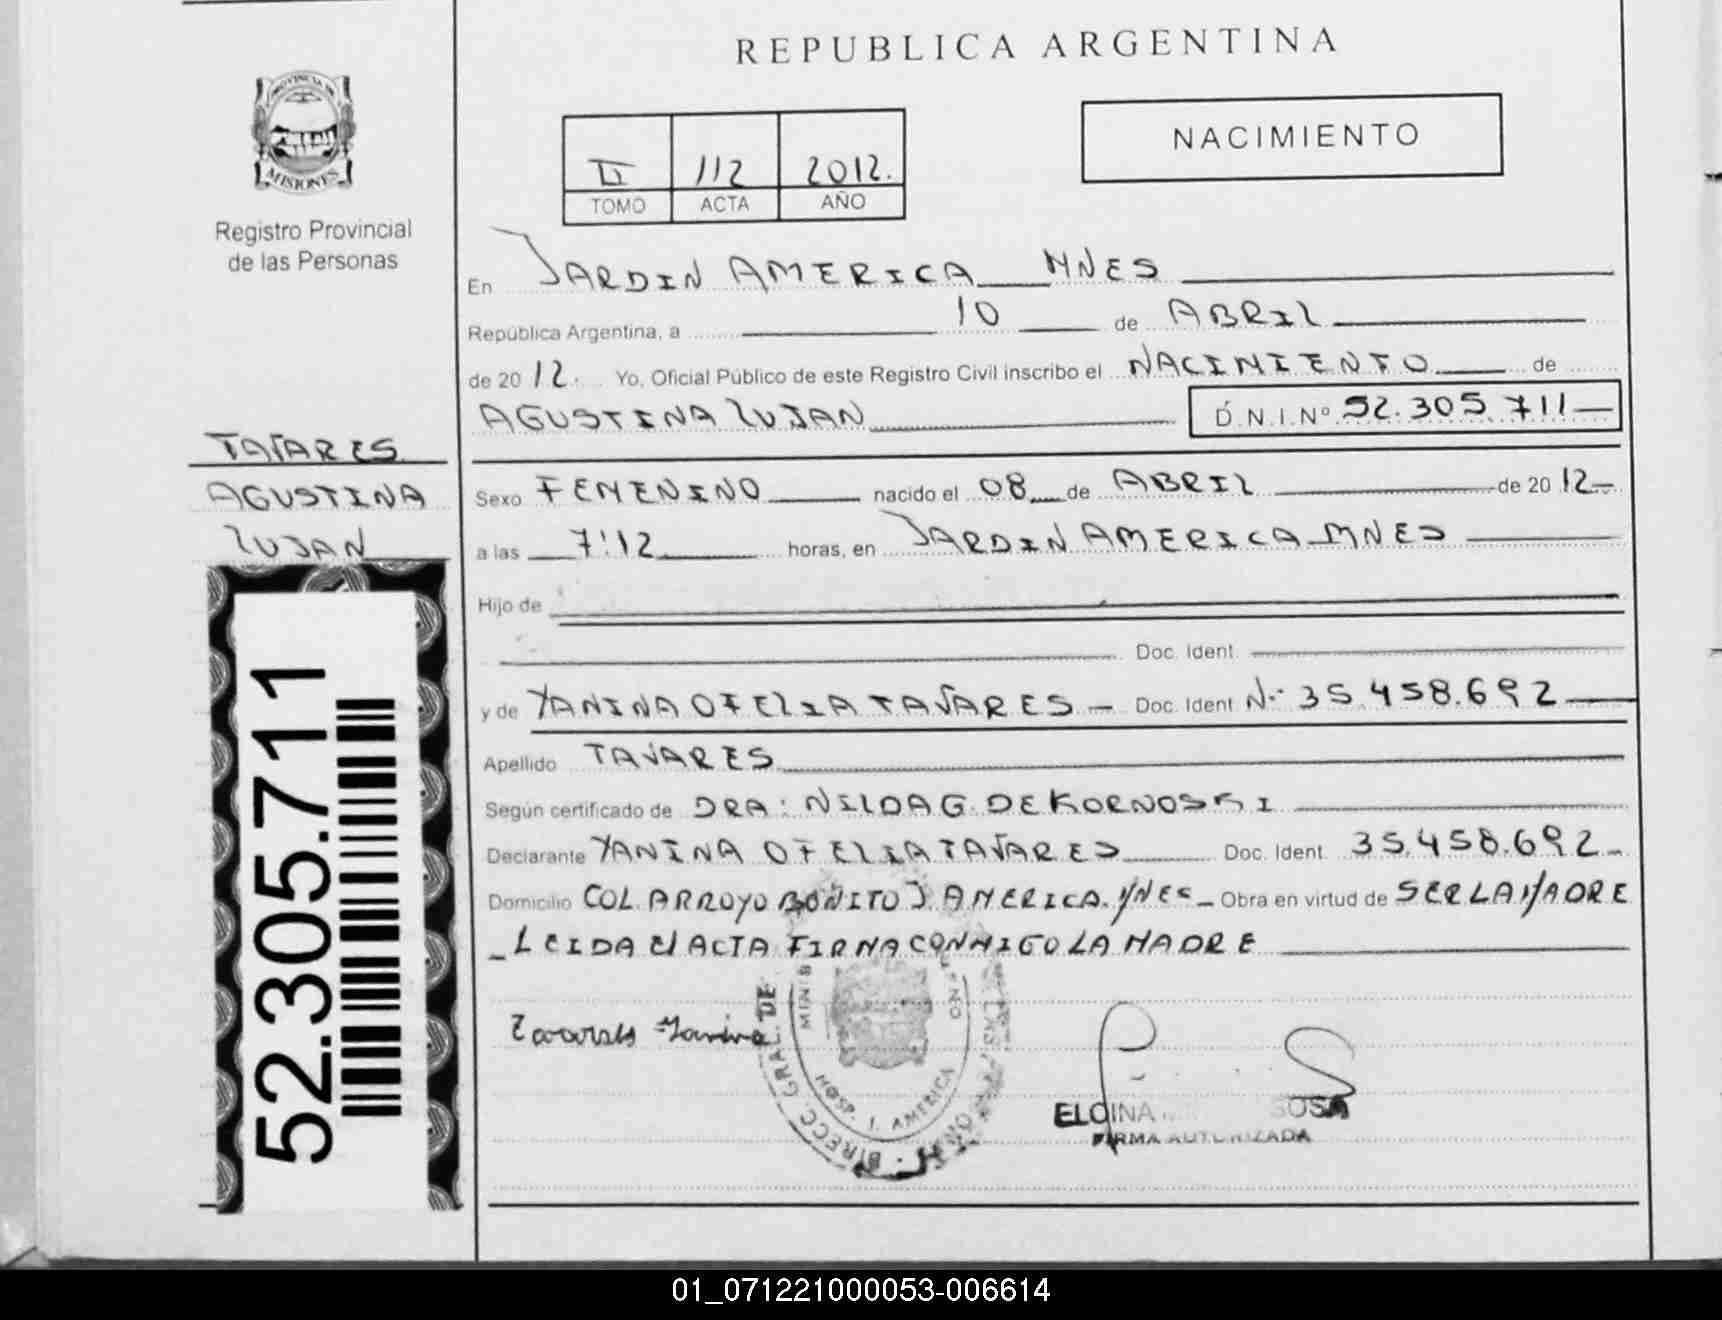 REPUBLICA ARGENTINA
PROVINCIA DE
MISIONES
Registro Provincial
de las Personas
II 112 2012.
TOMO ACTA AÑO
NACIMIENTO
En JARDIN AMERICA MNES
República Argentina, a 10 de ABRIL
de 20 12. Yo, Oficial Público de este Registro Civil inscribo el NACIMIENTO de
AGUSTINA LUJAN D.N.I. Nº 52.305.711
TAVARES
AGUSTINA
LUJAN
Sexo FEMENINO nacido el 08 de ABRIL de 20 12
a las 7:12 horas, en JARDIN AMERICA MNES
Hijo de
Doc. Ident.
y de YANINA OFELIA TAVARES Doc. Ident. Nº 35.458.692
Apellido TAVARES
Según certificado de DRA: NILDA G. DE KORNOSKI
Declarante YANINA OFELIA TAVARES Doc. Ident. 35.458.692
Domicilio COL. ARROYO BONITO J. AMERICA. MNES Obra en virtud de SER LA MADRE
LEIDA EL ACTA FIRMA CONMIGO LA MADRE
52.305.711
Tavares Yanina
DIRECC. GRAL. DE
HOSP. J. AMERICA
ELOINA SOSA
FIRMA AUTORIZADA
01_071221000053-006614